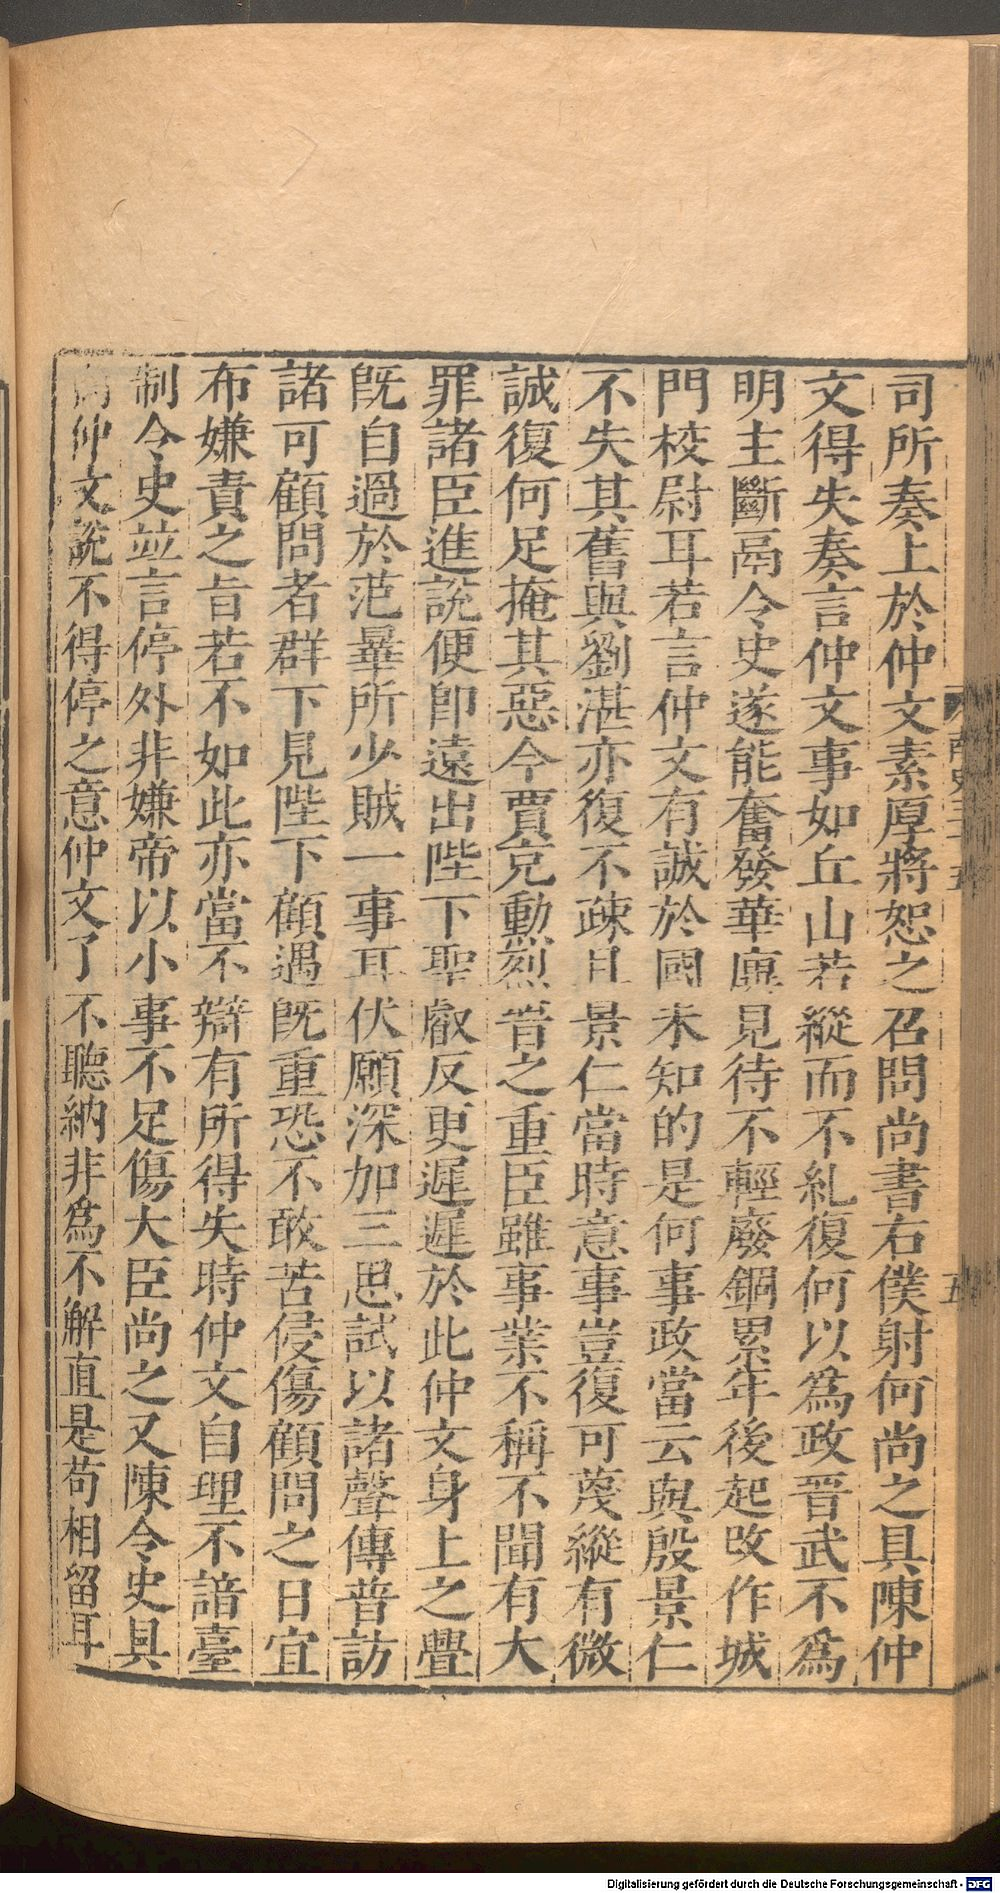 司所奏上於仲文素厚將恕之召問尚書右僕射何尚之具陳仲
文得失奏言仲文事如丘山若縱而不糺復何以爲政晉武不爲
明主斷鬲令史遂能奮發華廙見待不輕廢錮累年後起改作城
門校尉耳若言仲文有誠於國未知的是何事政當云與殷景仁
不失其舊與劉湛亦復不疎且景仁當時意事豈復可蔑縱有微
誠復何足掩其惡今賈充勳烈晉之重臣雖事業不稱不聞有大
罪諸臣進說便即遠出陛下聖叡反更遲遲於此仲文身上之釁
旣自過於范曅所少賊一事耳伏願深加三思試以諸聲傳普訪
諸可顧問者群下見陛下顧遇旣重恐不敢苦侵傷顧問之日宜
布嫌責之旨若不如此亦當不辯有所得失時仲文自理不諳臺
制令史竝言停外非嫌帝以小事不足傷大臣尚之又陳令史具
向仲文說不得停之意仲文了不聽納非爲不解直是苟相留耳
南史三十五
五
Digitalisierung gefördert durch die Deutsche Forschungsgemeinschaft - DFG